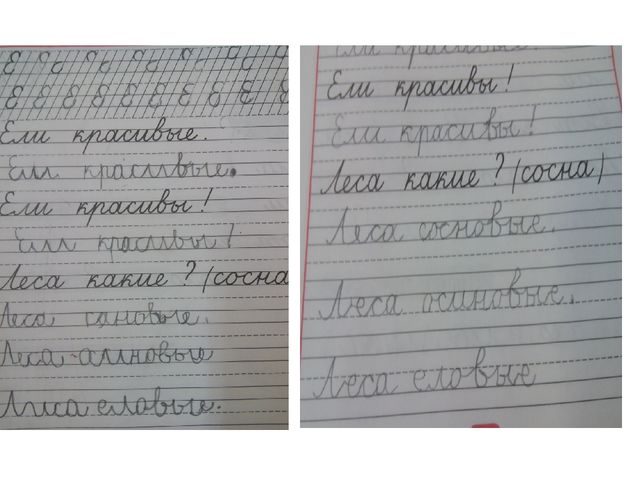 Ели красивые.
Ели красивые.
Ели красивы!
Ели красивы!
Леса какие? (сосна
Леса сановые.
Леса алиновые
Лиса еловые.
Ели красивы!
Ели красивы!
Леса какие? (сосна)
Леса сосновые.
Леса осиновые.
Леса еловые